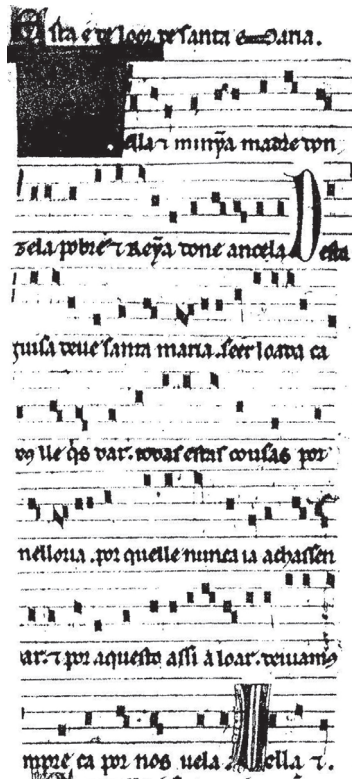 Esta e de loor de santa Maria.
ella ⁊ minỹa madre don
zela pobre ⁊ Reỹa done ancela Desta
guisa deue santa maria. seer loada ca
lle q̃s dar. todas estas cousas por
melloria. por quelle nunca ia achassen
par. ⁊ por aquesto assi a loar. deuiamos
mpre ca por nos uela Vella ⁊.